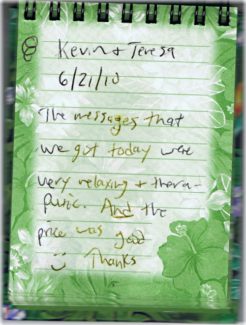 Kevin + Teresa
6/21/10
The messages that
we got today were
very relaxing + thera-
putic. And the
price was good
Thanks